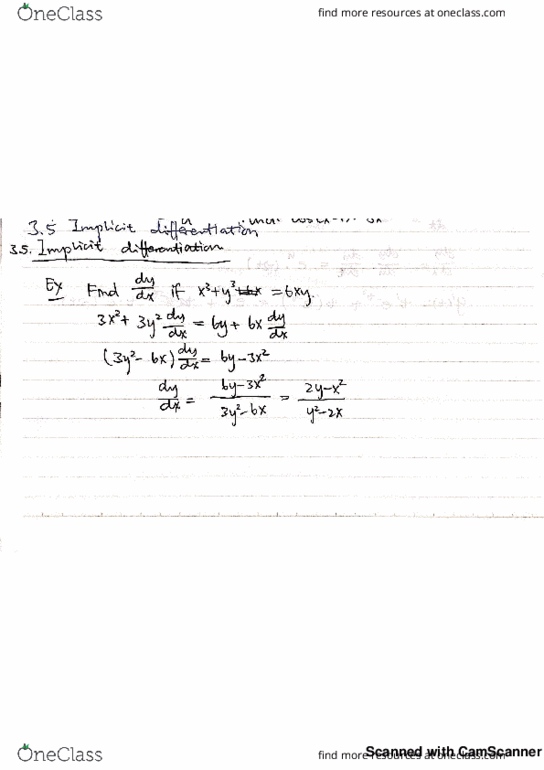 OneClass
find more resources at oneclass.com
3.5 Implicit differentiation
3.5. Implicit differentiation
Ex Find dy/dx if x³+y³ = 6xy.
3x²+ 3y² dy/dx = 6y + 6x dy/dx
(3y²- 6x) dy/dx = 6y-3x²
dy/dx = (6y-3x²)/(3y²-6x) = (2y-x²)/(y²-2x)
OneClass
find more resources at oneclass.com
Scanned with CamScanner